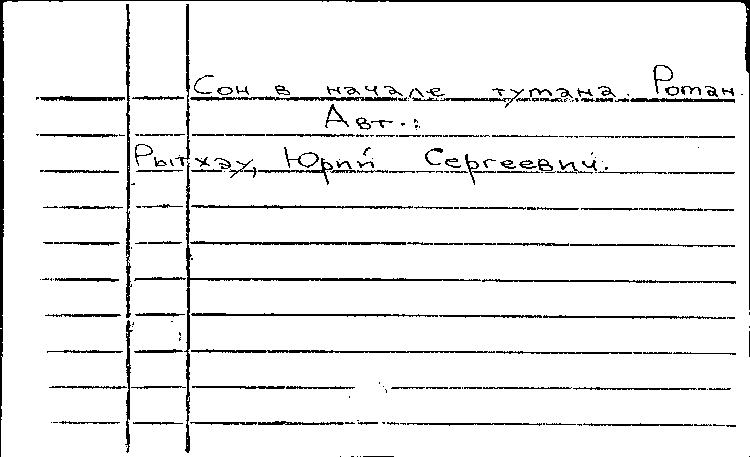 Сон в начале тумана. Роман.
Авт.:
Рытхэу, Юрий Сергеевич.